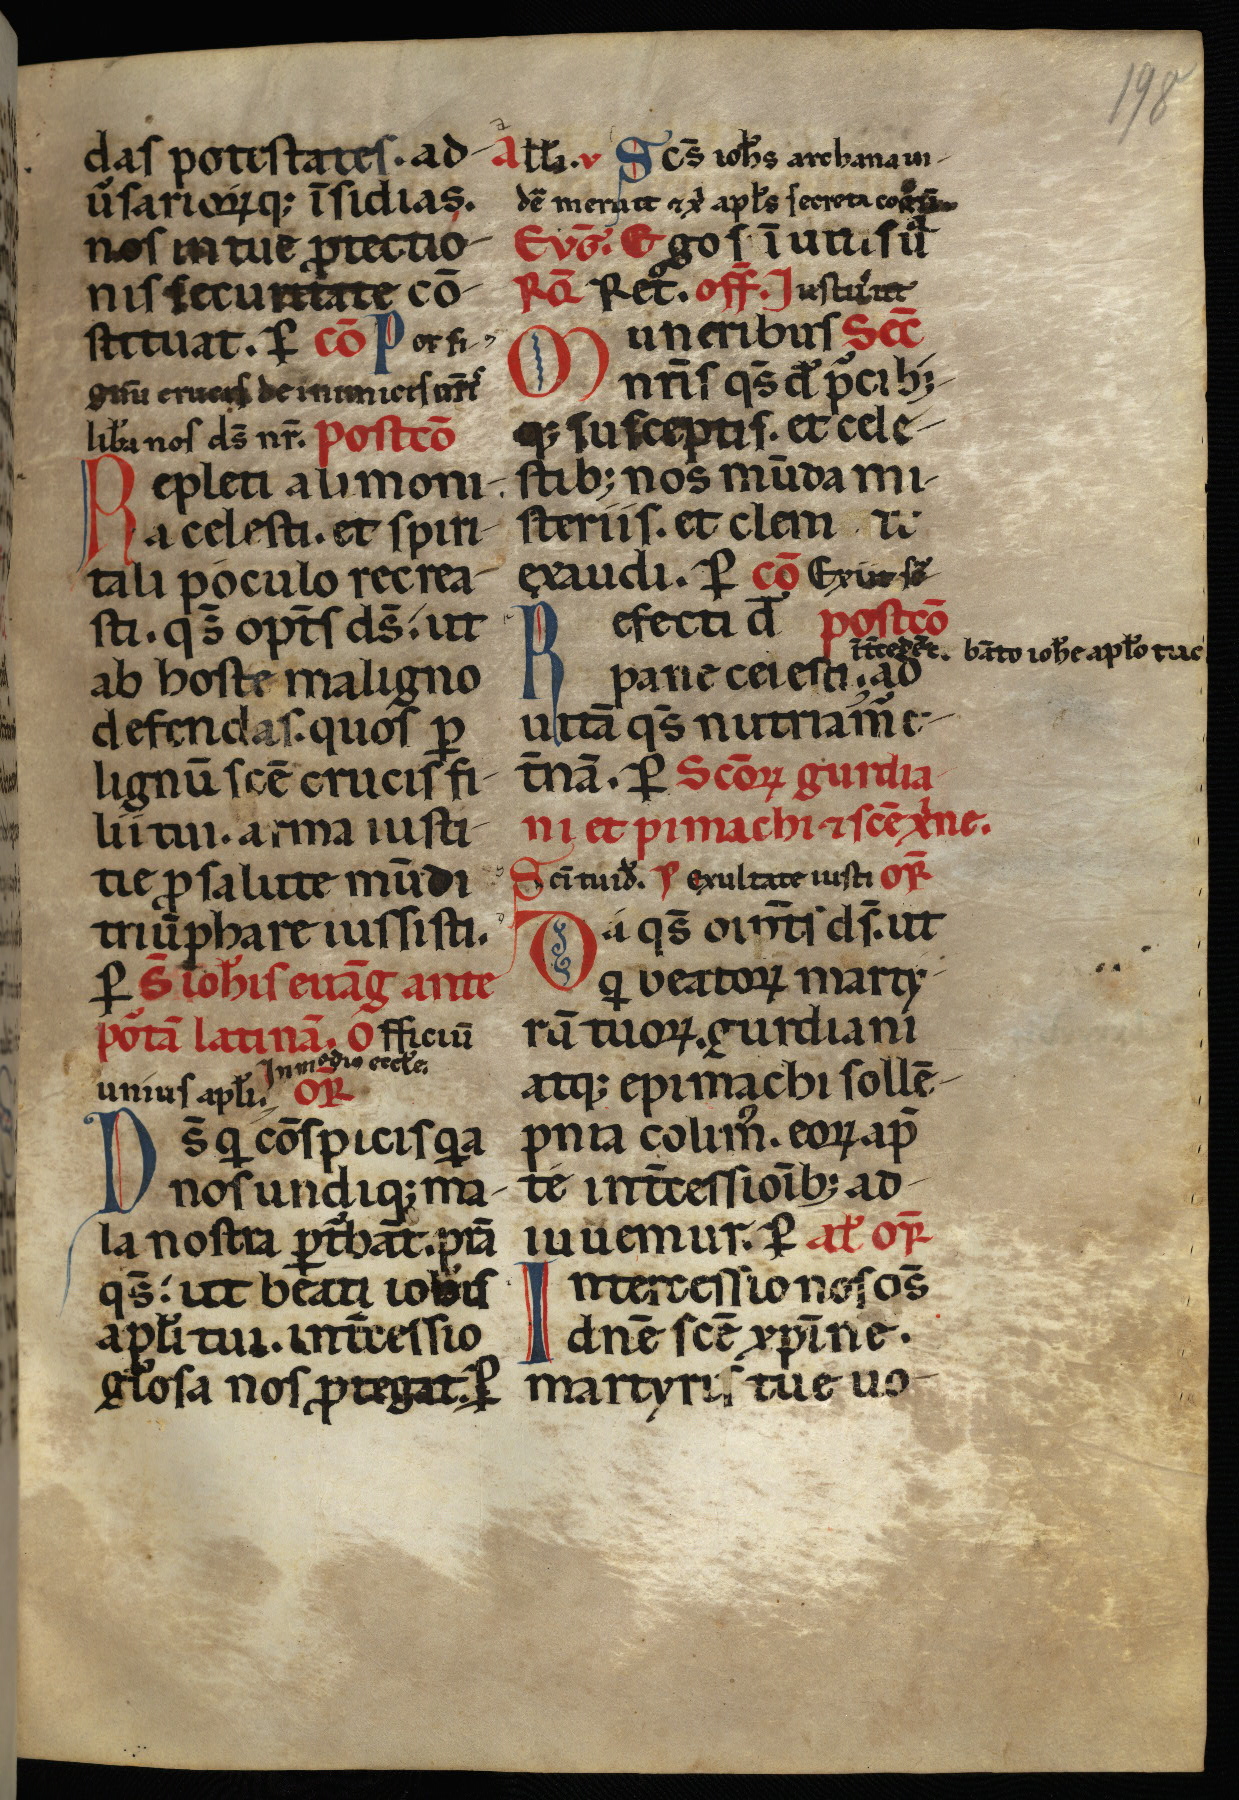 198
das potestates. ad
ūsariorꝝq; īsidias.
nos in tue ꝓtectio
nis securitate cō
stituat. ꝑ cō Per si
gnū crucis de inimicis nr̄is
liƀa nos ds̄ nr̄. postcō
Repleti alimoni
a celesti. et spiri
tali poculo recrea
sti. qs̄ opt̄s ds̄. ut
ab hoste maligno
defendas. quos ꝑ
lignū scē crucis fi
lii tui. arma iusti
tie ꝓ salute mūdi
triūphare iussisti.
ꝑ S̄ ioħis euāg ante
portā latinā. Officiū
unius apƚi. In medio eccƚe.
OR̄
Ds̄ q̄ cōspicis q̄a
nos undiq; ma
la nostra ꝑt̄bāt. pr̄a
qs̄. ut beati ioħis
apƚi tui. int̄cessio
gƚosa nos ꝓtegat. ꝑ
Aƚƚa. v Scs̄ ioħs archana ui
dē meruit ⁊ xp̄ apƚs secreta
Evḡ. Ego sī uitis ū
Rō Ret. off̄. Iustus ut
Muneribus Sec̄
nr̄is qs̄ dn̄e p̄cib;
q; susceptis. et cele
stib; nos mūda mi
steriis. et clem
exaudi. ꝑ cō Exiit s̄
Refecti d̄ postcō
īt̄cedēte. bāto ioħe apƚo tuo
pane celesti. ad
uitā qs̄ nutriam̄ e
t̄nā. ꝑ Scōrꝝ gurdia
ni et pimachi ⁊ scē xp̄ne.
Sci tui d̄. P̄ exultate iusti OR̄
Da qs̄ omp̄ts ds̄. ut
q̄ beatorꝝ marty
rū tuorꝝ. gurdiani
atq; epimachi sollē
pnia colim̄. eorꝝ ap̄
te int̄cessioīb; ad
iuuemur. ꝑ al̄ OR̄
Intercessio nos qs̄
dn̄e scē xp̄ine.
martyris tue uo